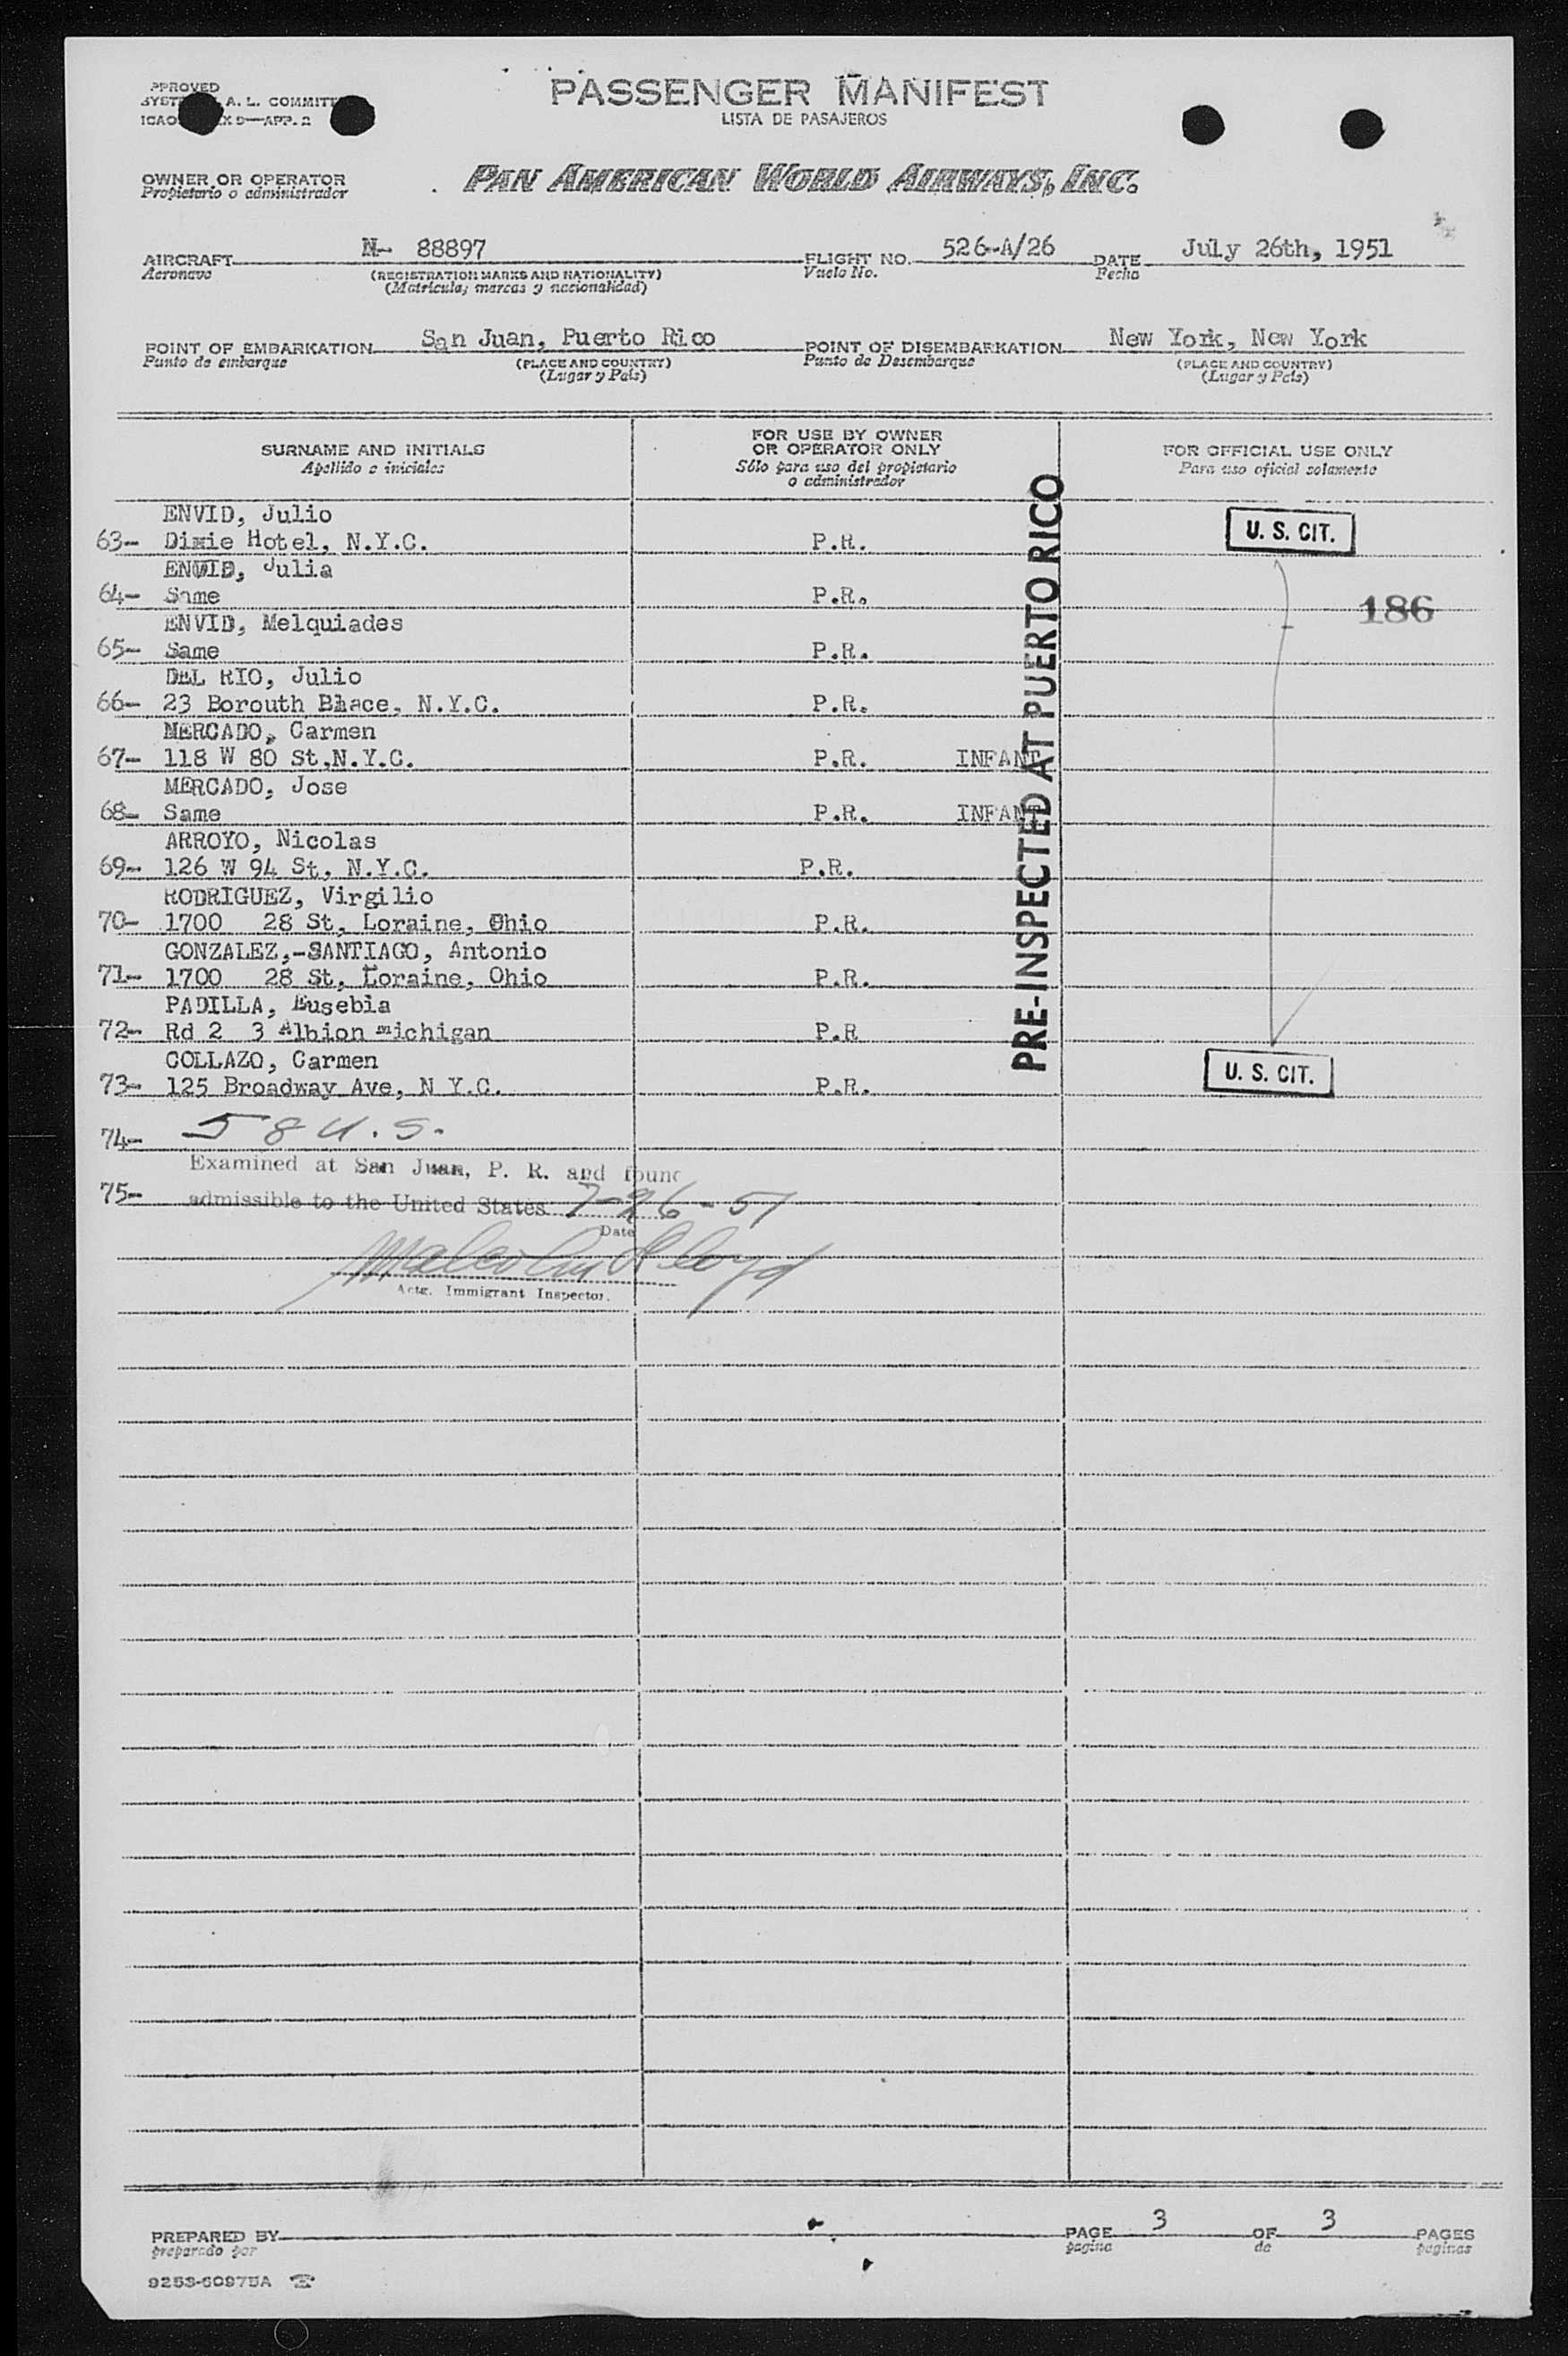 PPROVED
SYST A. L. COMMITT
ICAO X 9—APP. 2
PASSENGER MANIFEST
LISTA DE PASAJEROS
OWNER OR OPERATOR
Propietario o administrador
PAN AMERICAN WORLD AIRWAYS, INC.
AIRCRAFT N- 88897 FLIGHT NO. 526-A/26 DATE July 26th, 1951
Aeronave (REGISTRATION MARKS AND NATIONALITY) Vuelo No. Fecha
(Matricula, marcas y nacionalidad)
POINT OF EMBARKATION San Juan, Puerto Rico POINT OF DISEMBARKATION New York, New York
Punto de embarque (PLACE AND COUNTRY) Punto de Desembarque (PLACE AND COUNTRY)
(Lugar y País) (Lugar y País)
SURNAME AND INITIALS
Apellido e iniciales
FOR USE BY OWNER
OR OPERATOR ONLY
Sólo para uso del propietario
o administrador
FOR OFFICIAL USE ONLY
Para uso oficial solamente
PRE-INSPECTED AT PUERTO RICO
ENVID, Julio
63- Dixie Hotel, N.Y.C. P.R. U. S. CIT.
ENVID, Julia
64- Same P.R. 186
ENVID, Melquiades
65- Same P.R.
DEL RIO, Julio
66- 23 Borouth Blace, N.Y.C. P.R.
MERCADO, Carmen
67- 118 W 80 St,N.Y.C. P.R. INFANT
MERCADO, Jose
68- Same P.R. INFANT
ARROYO, Nicolas
69- 126 W 94 St, N.Y.C. P.R.
RODRIGUEZ, Virgilio
70- 1700 28 St, Loraine, Ohio P.R.
GONZALEZ,-SANTIAGO, Antonio
71- 1700 28 St, Loraine, Ohio P.R.
PADILLA, Eusebia
72- Rd 2 3 Albion michigan P.R
COLLAZO, Carmen
73- 125 Broadway Ave, N Y.C. P.R. U. S. CIT.
74- 58 U.S.
Examined at San Juan, P. R. and found
75- admissible to the United States 7-26-51
Date
Malcolm Lloyd
Actg. Immigrant Inspector.
PREPARED BY PAGE 3 OF 3 PAGES
preparado por pagina de paginas
9253-60975A